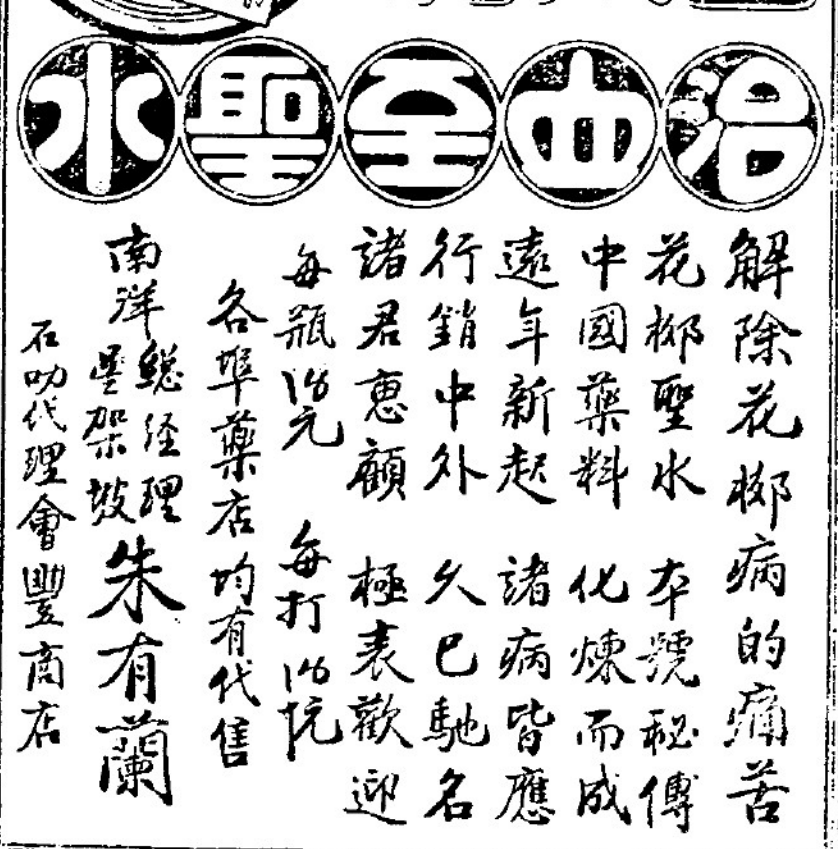 治血至聖水
解除花柳病的痛苦
花柳聖水 本號秘傳
中國藥料 化煉而成
遠年新起 諸病皆應
行銷中外 久已馳名
諸君惠顧 極表歡迎
每瓶 元 每打
各埠藥店均有代售
南洋總經理
星架坡
朱有蘭
石叻代理會豐商店